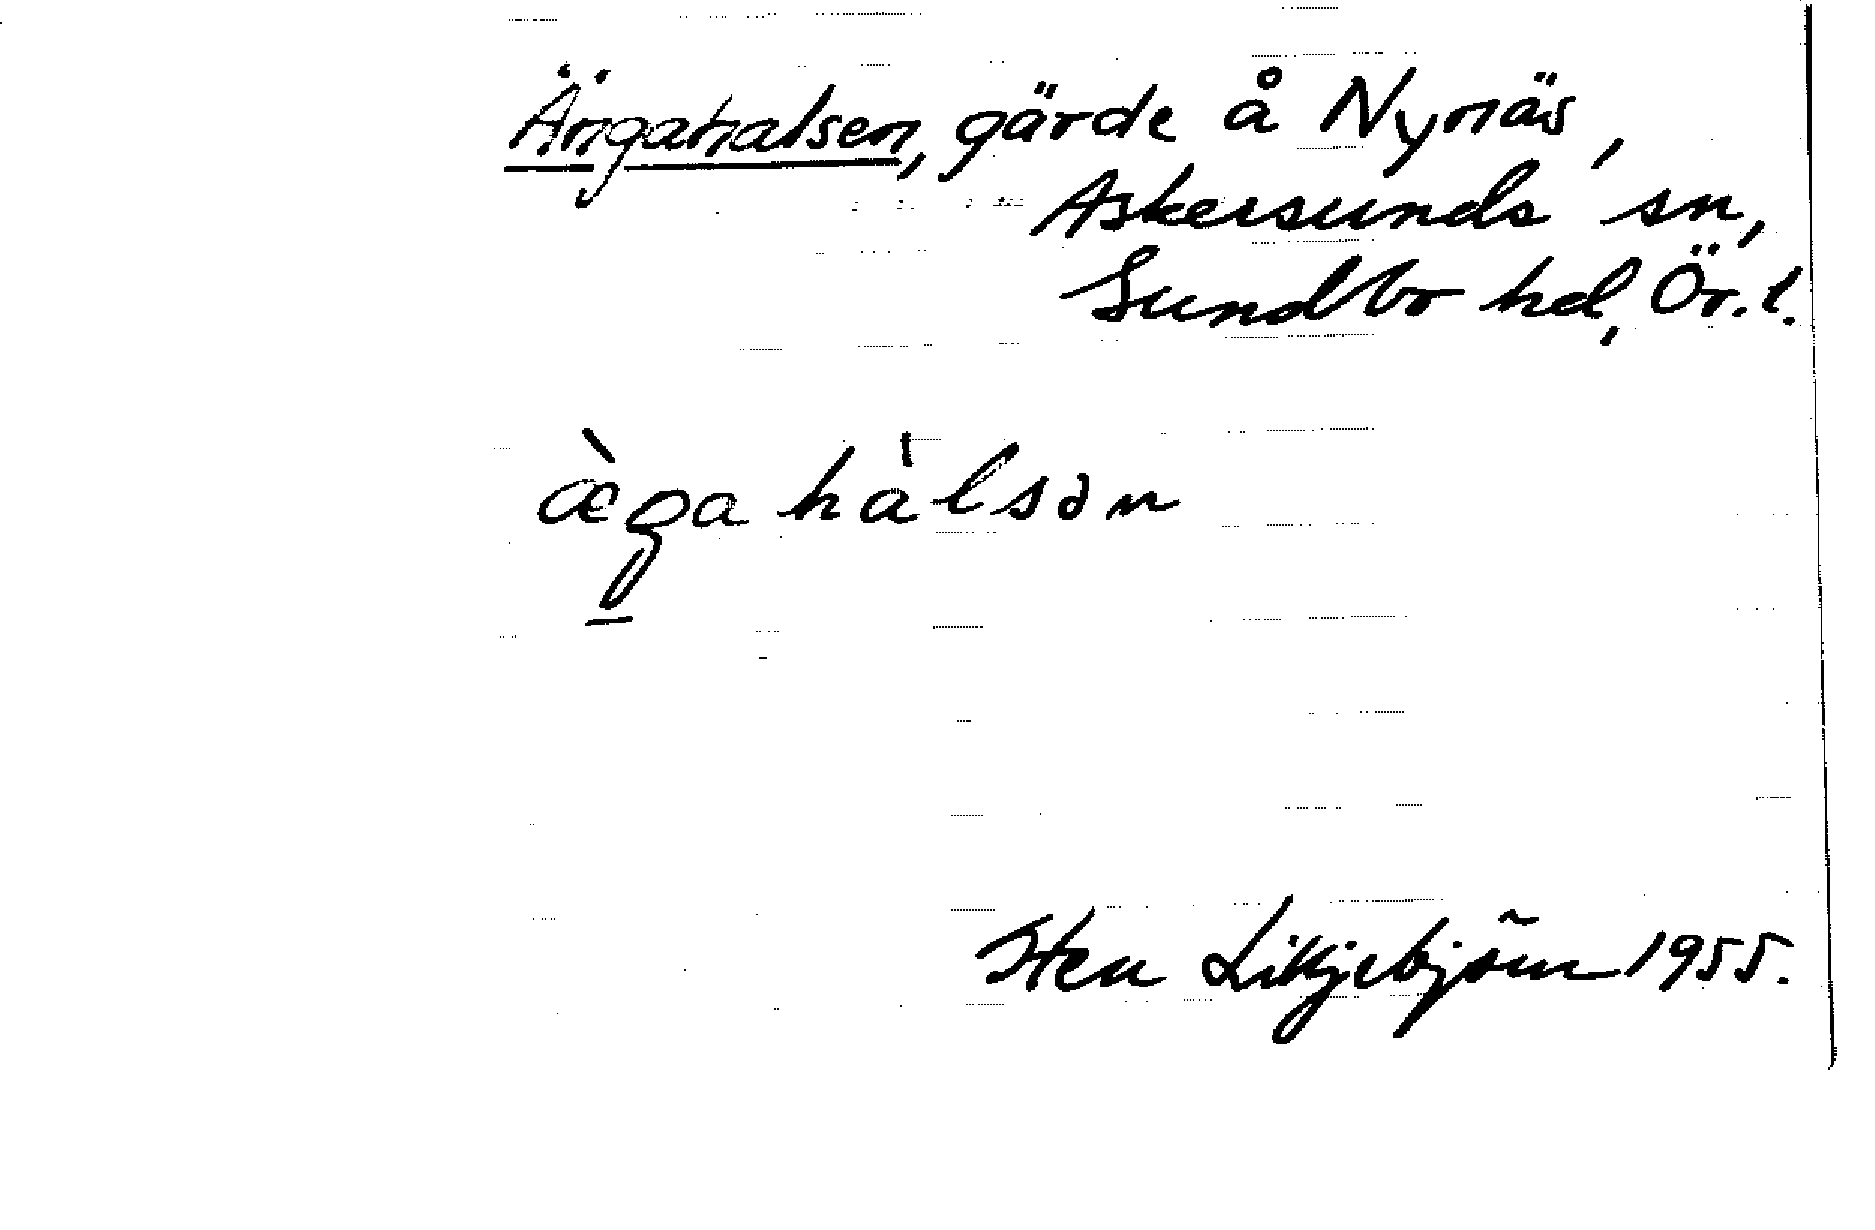 Ängahalsen, gärde å Nynäs,
Askersunds sn,
Sundbo hd, Ör. l.
æ̀ga hȧlsən
Sten Liljebjörn 1955.